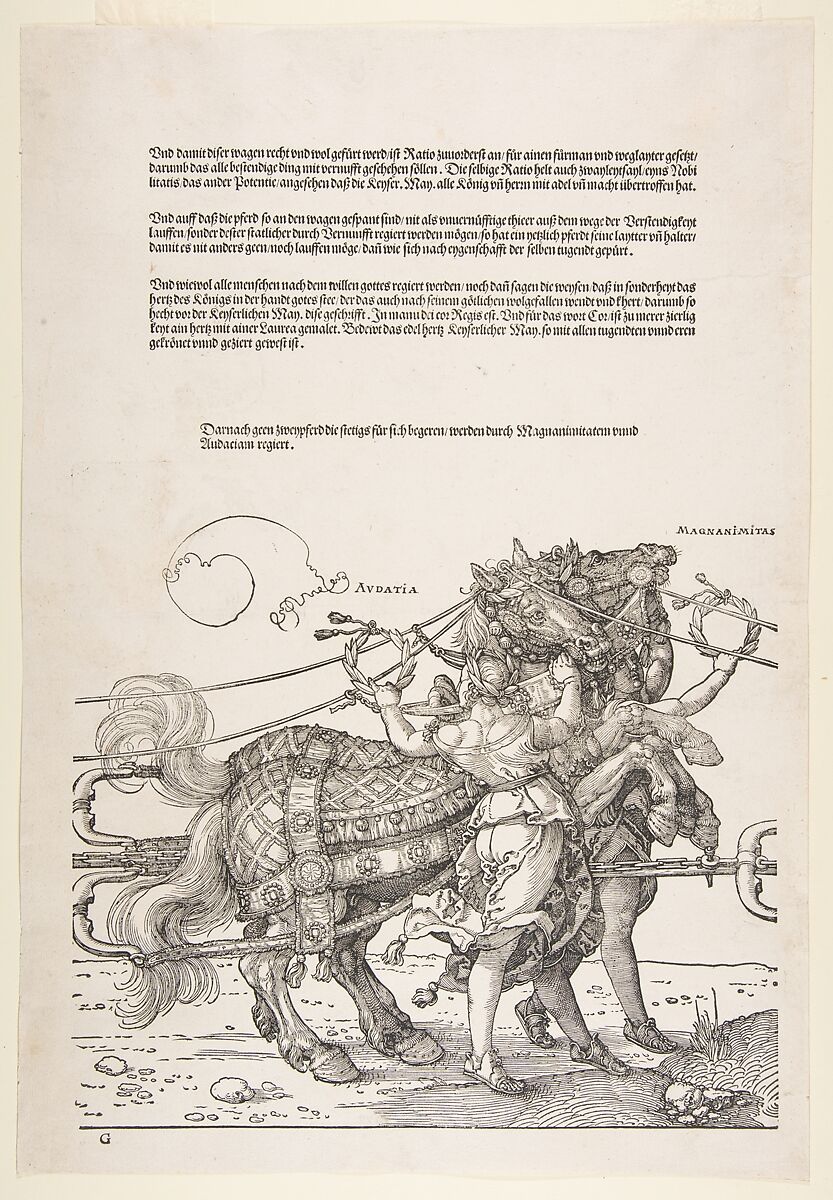 Vnd damit diser wagen recht vnd wol gefürt werd/ist Ratio zuuorderst an/für ainen fürman vnd weglayter gesetzt/
darumb das alle bestendige ding mit vernufft geschehen söllen. Die selbige Ratio helt auch zwayleytsayl/eyns Nobi
litatis/das ander Potentie/angesehen daß die Keyser. May. alle König vñ herrn mit adel vñ macht übertroffen hat.
Vnd auff daß die pferd so an den wagen gespant sind/nit als vnuernüfftige thieer auß dem wege der Verstendigkeyt
lauffen/sonder dester statlicher durch Vernunfft regiert werden mögen/so hat ein yetzlich pferdt seine laytter vñ halter/
damit es nit anders geen/noch lauffen möge/dañ wie sich nach eygenschafft der selben tugendt gepürt.
Vnd wiewol alle menschen nach dem willen gottes regiert werden/noch dañ sagen die weysen/daß in sonderheyt das
hertz des Königs in der handt gotes stee/der das auch nach seinem götlichen wolgefallen wendt vnd khert/darumb so
hecht vor der Keyserlichen May. dise geschrifft. In manu dei cor Regis est. Vnd für das wort Cor/ist zu merer zierlig
keyt ain hertz mit ainer Laurea gemalet. Bedewt das edel hertz Keyserlicher May. so mit allen tugendten vnnd eren
gekrönet vnnd geziert gewest ist.
Darnach geen zwey pferd die stetigs für sich begeren/werden durch Magnanimitatem vnnd
Audaciam regiert.
MAGNANIMITAS
AVDATIA
G